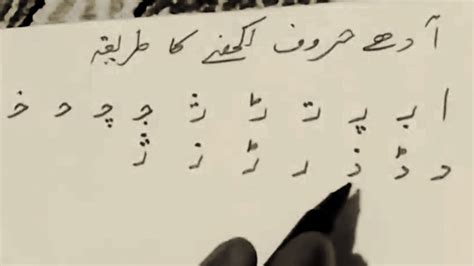 آدھے حروف لکھنے کا طریقہ
ا بـ پـ تـ ٹـ ثـ جـ چـ حـ خـ
د ڈ ذ ر ڑ ز ژ